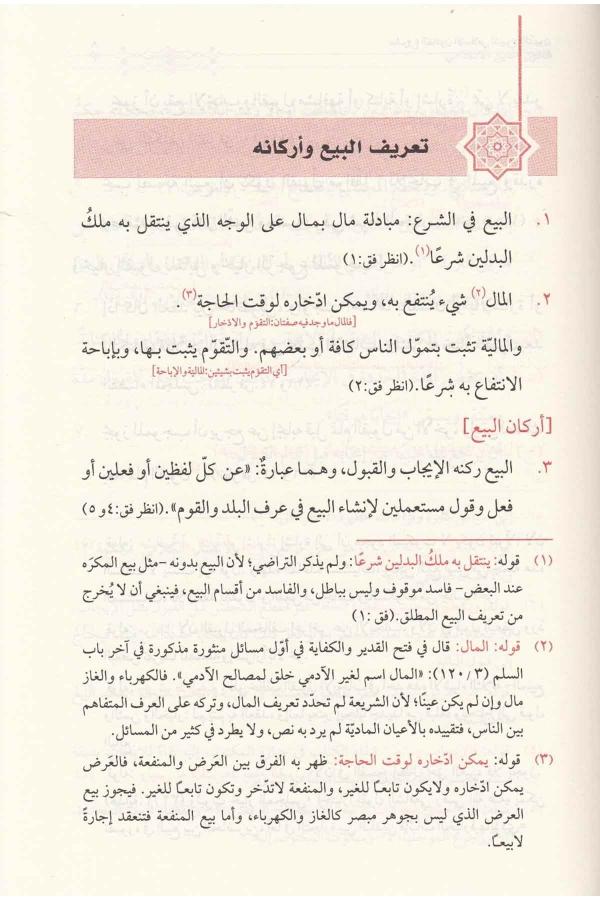 تعريف البيع وأركانه
١. البيع في الشرع: مبادلة مال بمال على الوجه الذي ينتقل به ملكُ
البدلين شرعًا(١).(انظر فق:١)
٢. المال(٢) شيء يُنتفع به، ويمكن ادّخاره لوقت الحاجة(٣).
[فالمال ما وجد فيه صفتان: التقوّم والادّخار]
والماليّة تثبت بتموّل الناس كافة أو بعضهم. والتّقوّم يثبت بـها، وبإباحة
[أي التقوّم يثبت بشيئين: المالية والإباحة]
الانتفاع به شرعًا.(انظر فق:٢)
[أركان البيع]
٣. البيع ركنه الإيجاب والقبول، وهـما عبارةٌ: «عن كلّ لفظين أو فعلين أو
فعل وقول مستعملين لإنشاء البيع في عرف البلد والقوم».(انظر فق:٤ و ٥)
(١) قوله: ينتقل به ملكُ البدلين شرعًا: ولم يذكر التراضي؛ لأن البيع بدونه -مثل بيع المكرَه
عند البعض- فاسد موقوف وليس بباطل، والفاسد من أقسام البيع، فينبغي أن لا يُخرج
من تعريف البيع المطلق.(فق :١)
(٢) قوله: المال: قال في فتح القدير والكفاية في أوّل مسائل منثورة مذكورة في آخر باب
السلم (٣/ ١٢٠): «المال اسم لغير الآدمي خلق لمصالح الآدمي». فالكهرباء والغاز
مال وإن لم يكن عينًا؛ لأن الشريعة لم تحدّد تعريف المال، وتركه على العرف المتفاهم
بين الناس، فتقييده بالأعيان الماديّة لم يرد به نص، ولا يطرد في كثير من المسائل.
(٣) قوله: يمكن ادّخاره لوقت الحاجة: ظهر به الفرق بين العَرض والمنفعة، فالعَرض
يمكن ادّخاره ولايكون تابعـًا للغير، والمنفعة لاتدّخر وتكون تابعـًا للغير. فيجوز بيع
العرض الذي ليس بجوهر مبصر كالغاز والكهرباء، وأما بيع المنفعة فتنعقد إجارةً
لابيعـًا.